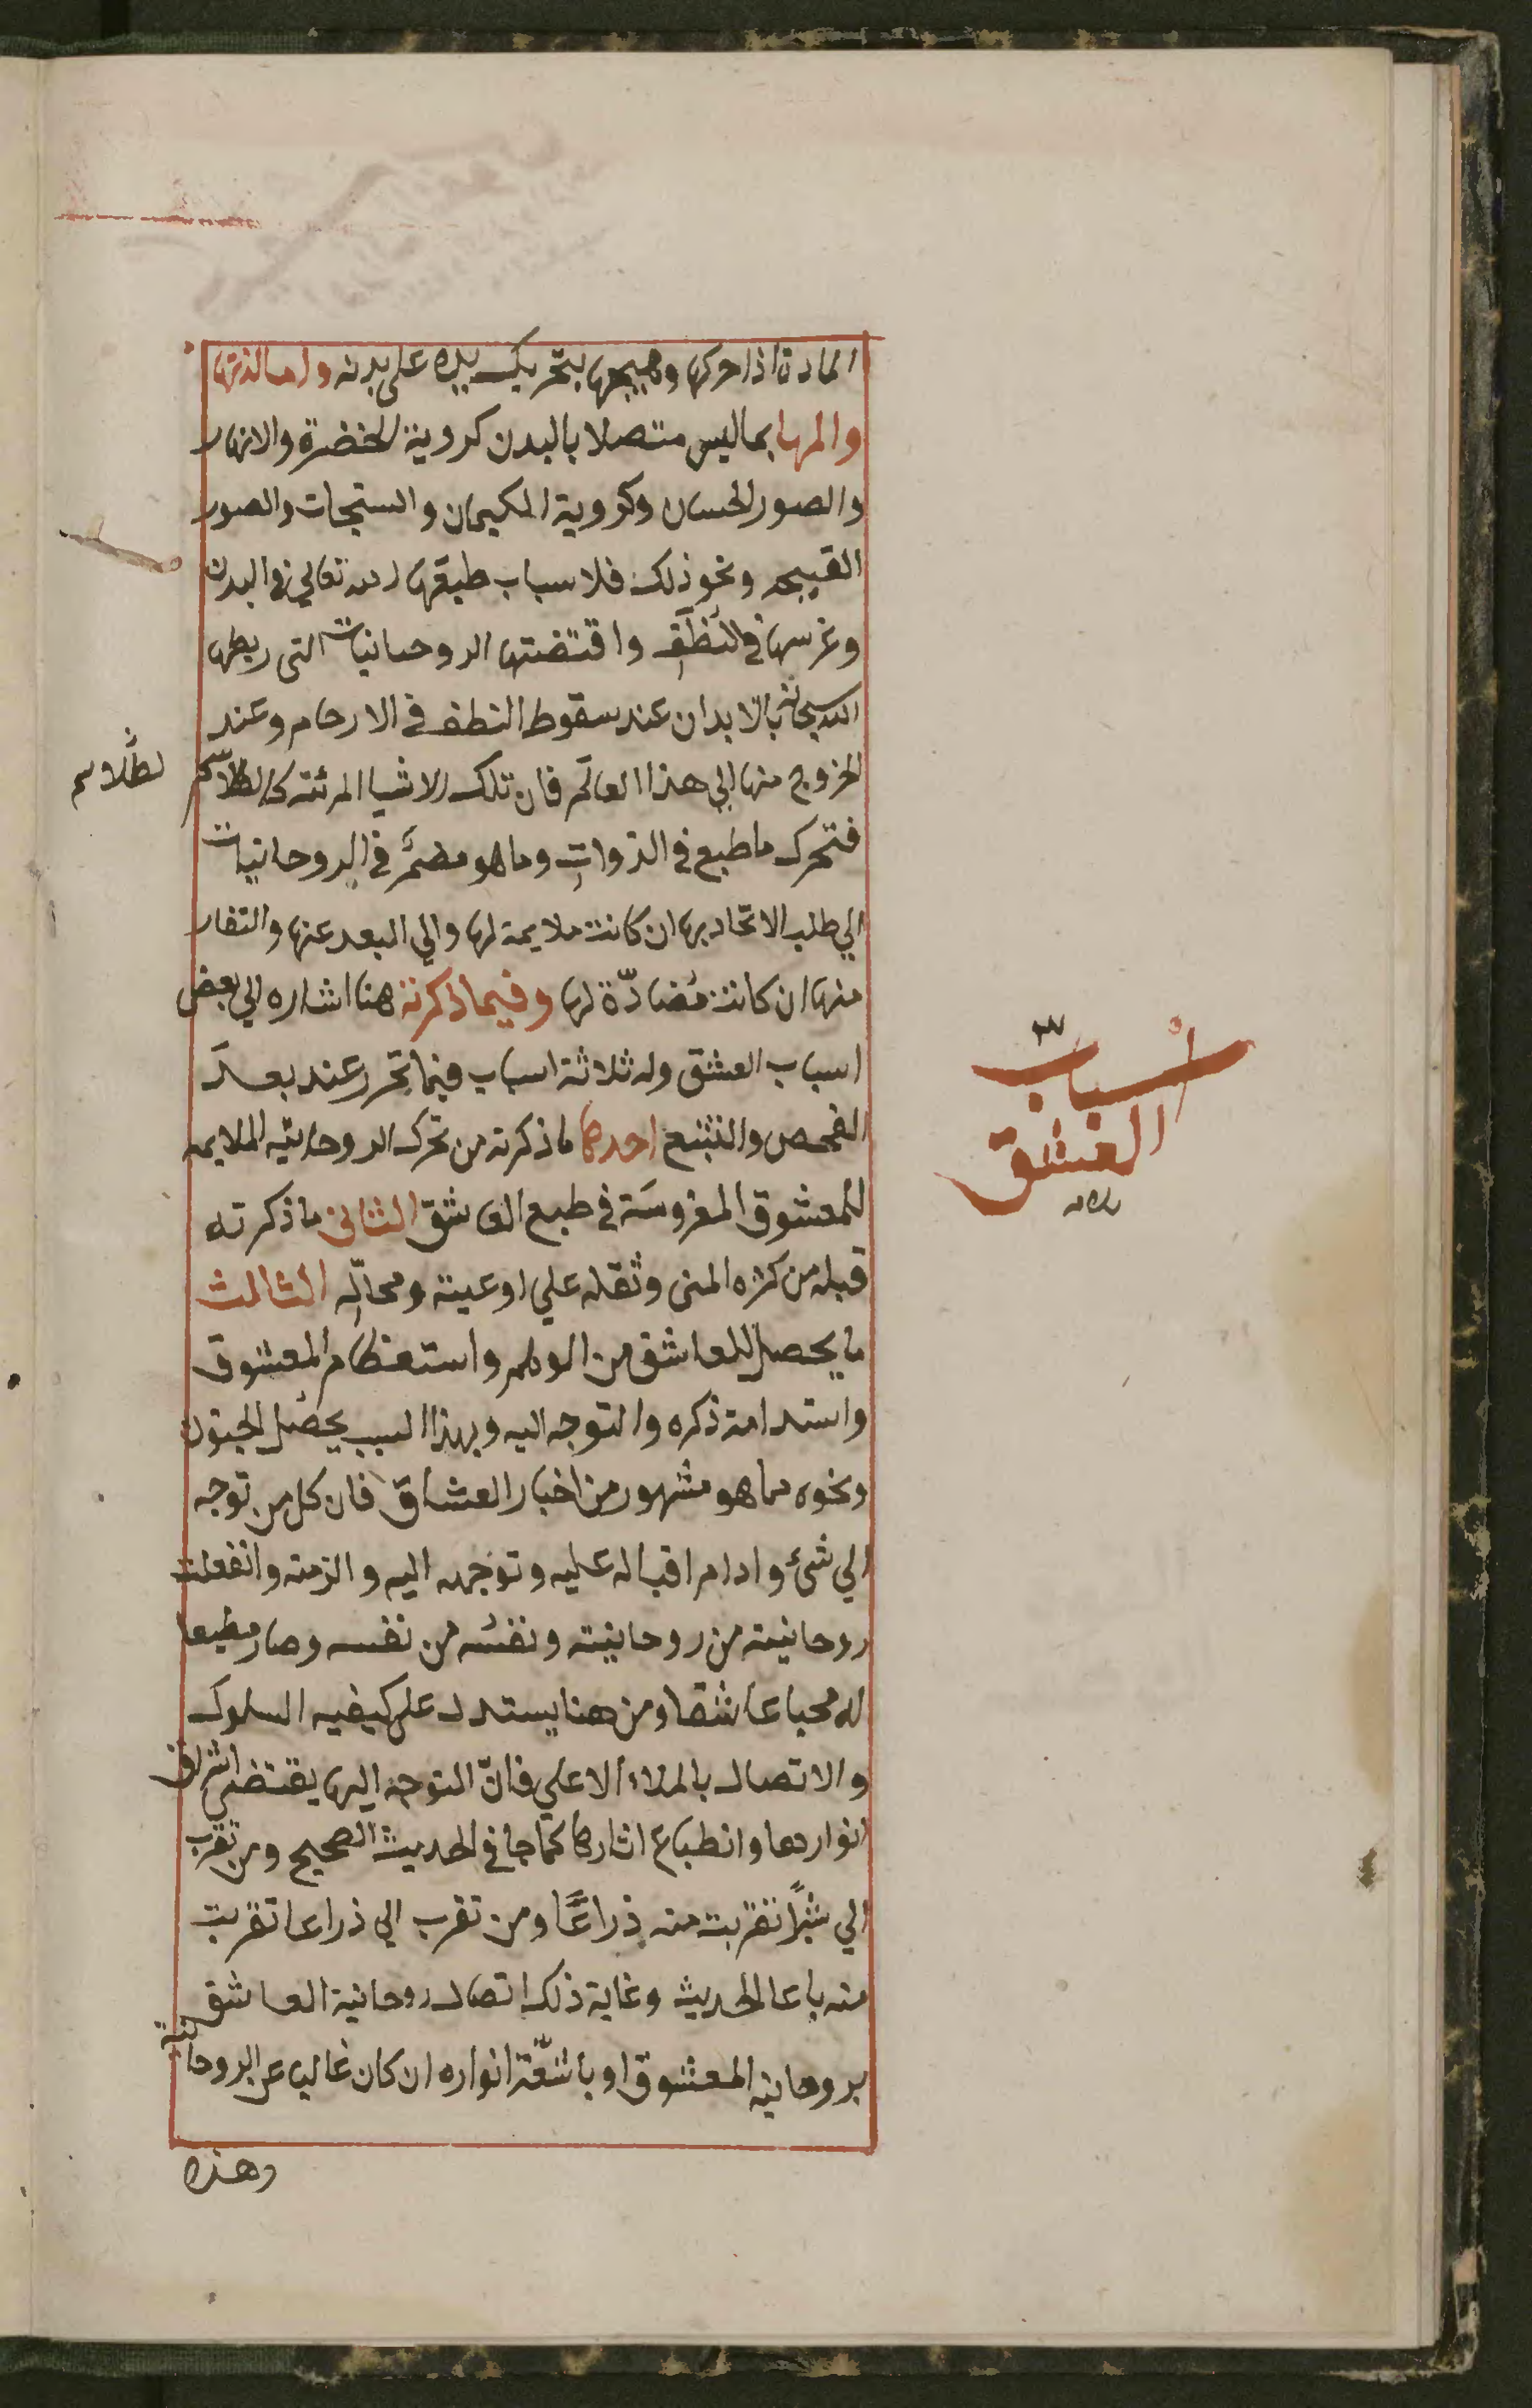 المادة اذا حركها وهيجها بتحريك يده على بدنه واما لذتها
والمها بما ليس متصلا بالبدن كروية الخضرة والانهار
والصور الحسان وكروية المكيمان والستجات والصور
القبيحه ونحو ذلك فلاسباب طبعها الله تعالي في البدن
وغرسها في النطف واقتضتها الروحانيات التى ربطها
الله سبحانه بالابدان عند سقوط النطف في الارحام وعند
الخروج منها الي هذا العالم فان تلك الاشيا المرئته كالطلاسم
لطلاسم
فتحرك ما طبع في الذوات وما هو مضمر في الروحانيات
الي طلب الاتحاد بها ان كانت ملايمة لها والي البعد عنها والتفار
منها ان كانت مُضادّة لها وفيما ذكرته هنا اشاره الي بعض
اسباب العشق وله ثلاثة اسباب فيما تحرر عند بعد
الفحص والتتبع احدها ما ذكرته من تحرك الروحانيه الملايمه
للمعشوق المغروسَة في طبع العاشق الثاني ما ذكرته
قبله من كثره المنى وثقله علي اوعيته ومحالّه الثالث
ما يحصل للعاشق من الوهم واستعظام المعشوق
واستدامة ذكره والتوجه اليه وبهذا السبب يحصل الجنون
ونحوه مما هو مشهور من اخبار العشاق فان كل من توجه
الي شئ وادام اقباله عليه وتوجهه اليه والزمته وانفعلت
روحانيته من روحانيته ونفسُه من نفسه وصار مطيعا
له محبا عاشقا ومن هنا يستدل على كيفيه السلوك
والاتصال بالملاء الاعلي فانّ التوجه اليها يقتضى اشراق
انوارها وانطباع اثارها كما جا في الحديث الصحيح ومن تقرب
الي شبرًا تقربت منه ذراعًا ومن تقرب الي ذراعا تقربت
منه باعا الحديث وغاية ذلك اتصال روحانية العاشق
بروحانية المعشوق او باشعّة انواره ان كان غاليا عن الروحانية
وهذه
اسباب
العشق